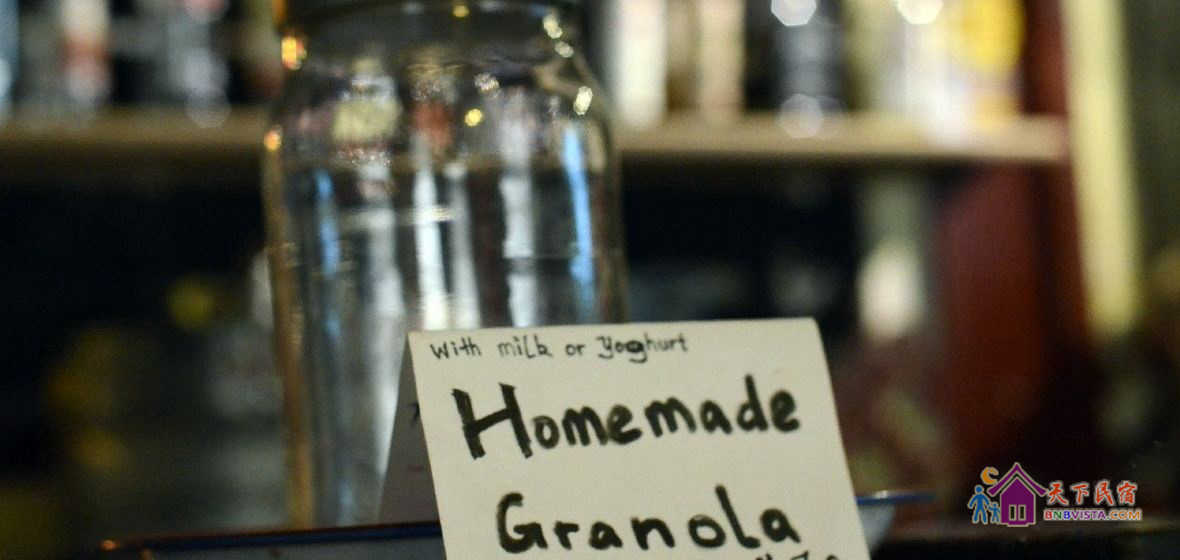 with milk or Yoghurt
Homemade
Granola
天下民宿
BNBVISTA.COM